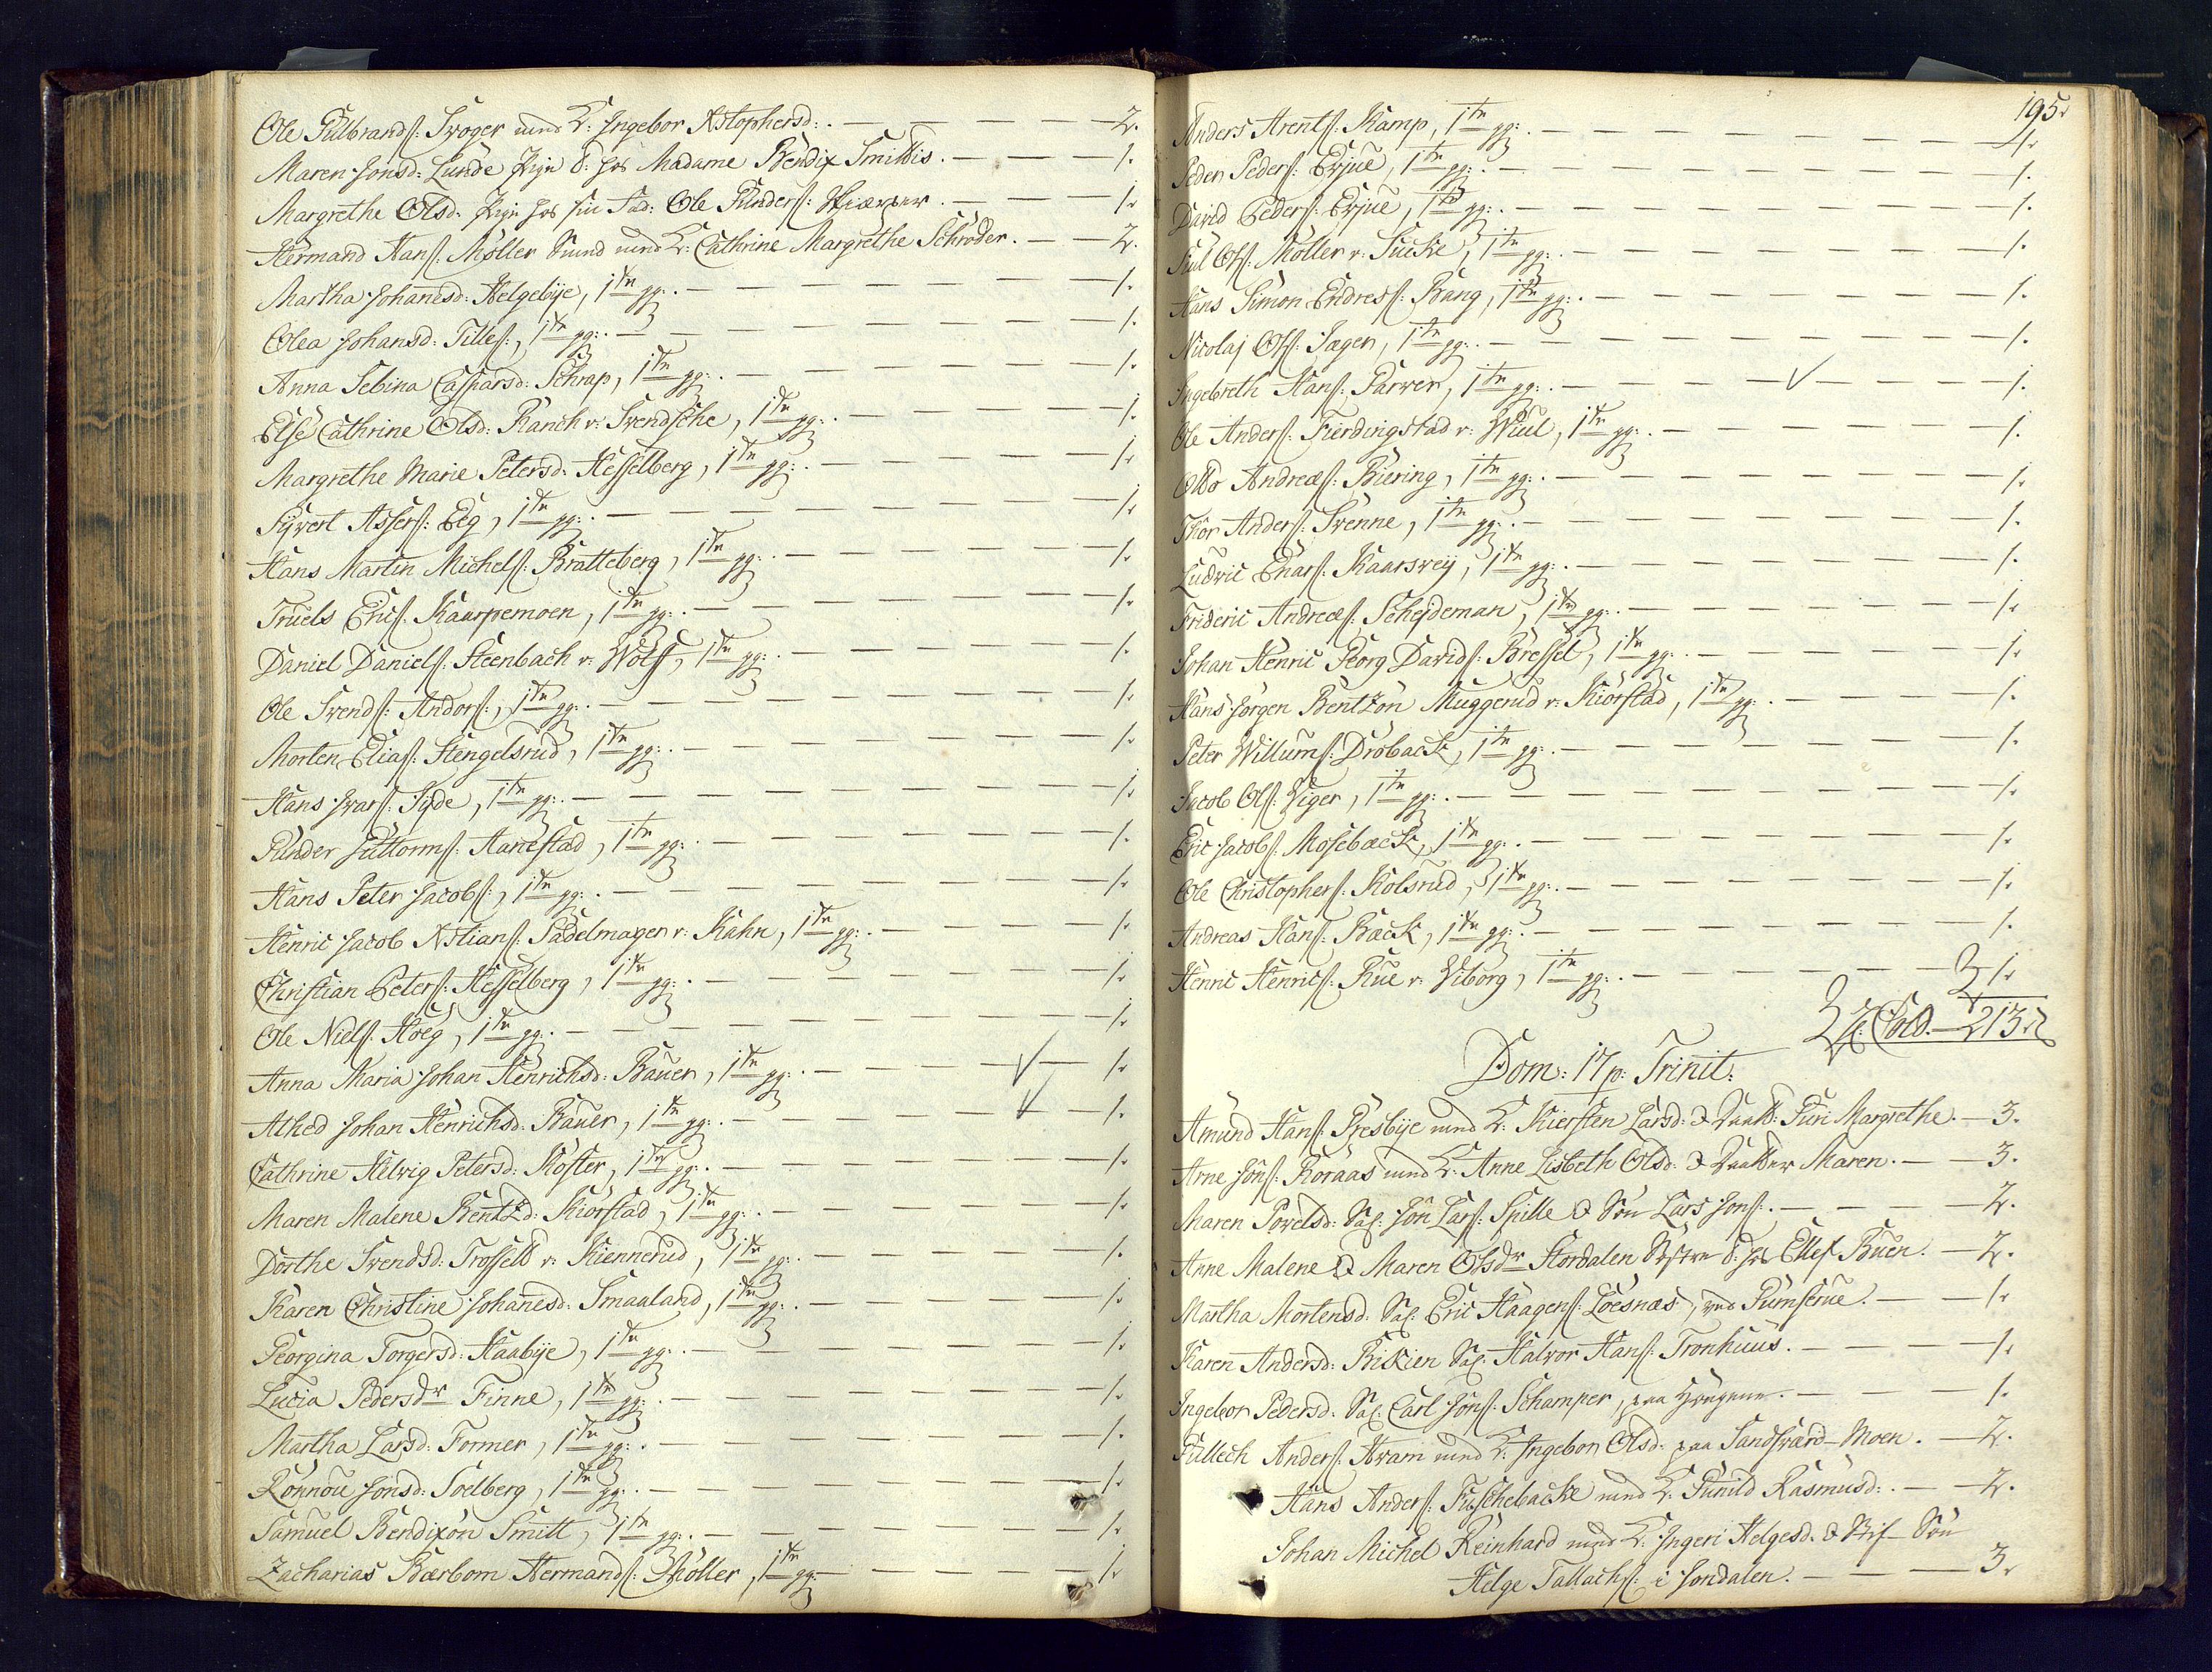 Ole Gulbrands: Svoger und K: Ingebor Xstophersd: . — — — 2.
Maren Jonsd: Lunde Pige d. hos Madame Bendix Smiths. — — — 1.
Margrethe Olsd: Pige hos sin Fad: Ole Gunders: — — 1.
Hermand Hans: Møller Smed und K: Cathrine Margrethe Schrøder. — — 2.
Martha Johanesd: Helgebye, 1te gg: . — — — 1.
Olea Johansd: Tilles:, 1te gg: . — — — 1.
Anna Sebina Caspersd: Schrap, 1te gg: . — — — 1.
Else Cathrine Olsd: Ranch v: Svendsche, 1te gg: . — — — 1.
Margrethe Marie Petersd: Hesselberg, 1te gg: . — — — 1.
Syvert Assers: Eeg, 1te gg: . — — — 1.
Hans Martin Michels: Bratteberg, 1te gg: . — — — 1.
Truels Erics: Kaarpemoen, 1te gg: . — — — 1.
Daniel Daniels: Steenbach v: Wolff, 1te gg: . — — — 1.
Ole Svends: Andors:, 1te gg: . — — — 1.
Morten Elias: Stengelsrud, 1te gg: . — — — 1.
Hans Ivars: Syde, 1te gg: . — — — 1.
Gunder Guttorms: Aanestad, 1te gg: . — — — 1.
Hans Peter Jacobs:, 1te gg: . — — — 1.
Henric Jacob Xstians: Sadelmager v: Kahn, 1te gg: . — — — 1.
Christian Peters: Hesselberg, 1te gg: . — — — 1.
Ole Niels: Hoeg, 1te gg: . — — — 1.
Anna Maria Johan Henrichsd: Bauer, 1te gg: . — — √ — 1.
Athed Johan Henrichsd: Bauer, 1te gg: . — — √ — 1.
Cathrine Helvig Petersd: Koster, 1te gg: . — — — 1.
Maren Malene Bentzd: Kiørstad, 1te gg: . — — — 1.
Dorthe Svendsd: Trosseld v: Kiennerud, 1te gg: . — — — 1.
Karen Christine Johanesd: Smaaland, 1te gg: . — — — 1.
Georgina Torgersd: Haabye, 1te gg: . — — — 1.
Lucia Pedersdr Finne, 1te gg: . — — — 1.
Martha Larsd: Former, 1te gg: . — — — 1.
Rønnou Jonsd: Soelberg, 1te gg: . — — — 1.
Samuel Bendixøn Smitt, 1te gg: . — — — 1.
Zacharias Bærbom Hermands: Møller, 1te gg: — — — 1.
195.
Anders Arents: Kamp, 1te gg: . — — — 1.
Peder Peders: Erjue, 1te gg: . — — — 1.
David Peders: Erjue, 1te gg: . — — — 1.
Juul Ols: Møller v: Sucke, 1te gg: . — — — 1.
Hans Simon Endres: Bang, 1te gg: . — — — 1.
Nicolaj Ols: Jæger, 1te gg: . — — — 1.
Ingebreth Hans: Farver, 1te gg: . — — √ — 1.
Ole Anders: Fierdingstad v: Wiul, 1te gg: . — — — 1.
Otto Andreæs: Biering, 1te gg: . — — — 1.
Thor Anders: Svenne, 1te gg: . — — — 1.
Ludvic Enars: Kaarsvey, 1te gg: . — — — 1.
Frideric Andreæs: Schejdeman, 1te gg: . — — — 1.
Johan Henric Georg Davids: Bressel, 1te gg: . — — — 1.
Hans Jørgen Bentzøn Muggerud v: Kiørstad, 1te gg: . — — — 1.
Peter Willums: Drøback, 1te gg: . — — — 1.
Jacob Ols: Viger, 1te gg: . — — — 1.
Eric Jacobs: Mosebæck, 1te gg: . — — — 1.
Ole Christophers: Kolsrud, 1te gg: . — — — 1.
Andreas Hans: Bæck, 1te gg: . — — — 1.
Henric Henrics: Rue v: Viborg, 1te gg: . — — — 1.
— 213.
Dom: 17 p: Trinit:
Amund Hans: Presbye und K: Kiersten Larsd: & Daatt: Guri Margrethe. — 3.
Arne Jons: Koraas und K: Anne Lisbeth Olsd: & Daatter Maren. — — 3.
Maren Povelsd: Sal: Jon Lars: Spille & Søn Lars Jons: . — — 2.
Anne Malene & Maren Olsdr Stordalen Søstre d: hos Ellef Buen. — 2.
Martha Mortensd: Sal: Eric Haagens: Loesnæs, ved Gumserue. — — 1.
Karen Andersd: Bikien Sal: Halvor Hans: Tronhuus. — — — 1.
Ingebor Pedersd: Sal: Carl Jons: Schamper, paa Haugene. — — 1.
Tullech Anders: Aram und K: Ingebor Olsd: paa Sandsværd-Moen. — 2.
Hans Anders: Fuschebacke und K: Gunild Rasmusd: . — — 2.
Johan Michel Reinhard und K: Ingeri Helgesd: & Stif-Søn
Helge Tallachs: i Jondalen. — — — 3.